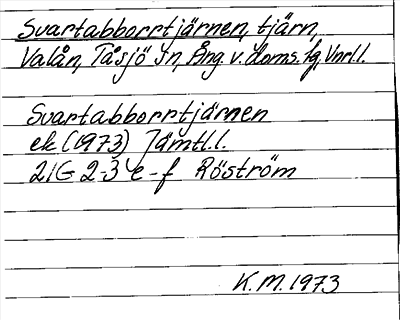 Svartabborrtjärnen, tjärn,
Valån, Tåsjö sn, Ång. v. doms. lg, Vnrl.l.
Svartabborrtjärnen
ek (1973) Jämtl.l.
21G 2-3 e-f Röström
K.M. 1973